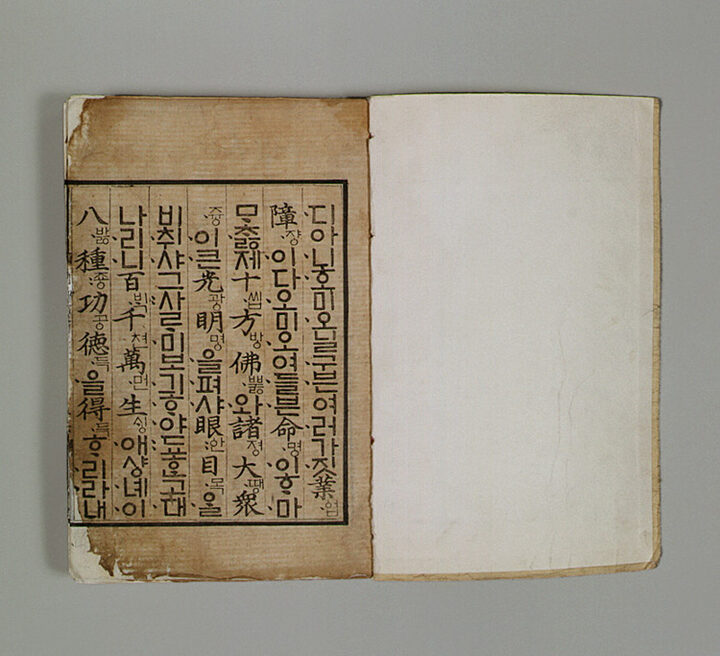 디아니호미오닐구븐여러가짓業업
障쟝이다오미오여들븐命명이ᄒᆞ마
ᄆᆞᄎᆞᇙ제十씹方방佛뿌ᇙ와諸졍大땡衆
쥬ᇰ이큰光광明명을펴샤眼안目목ᄋᆞᆯ
비취샤그사ᄅᆞ미보긔ᄒᆞ야됴ᄒᆞᆫ고대
나리니百ᄇᆡᆨ千쳔萬먼生ᄉᆡᇰ애샹녜이
八바ᇙ種죠ᇰ功공德득을得득ᄒᆞ리라내